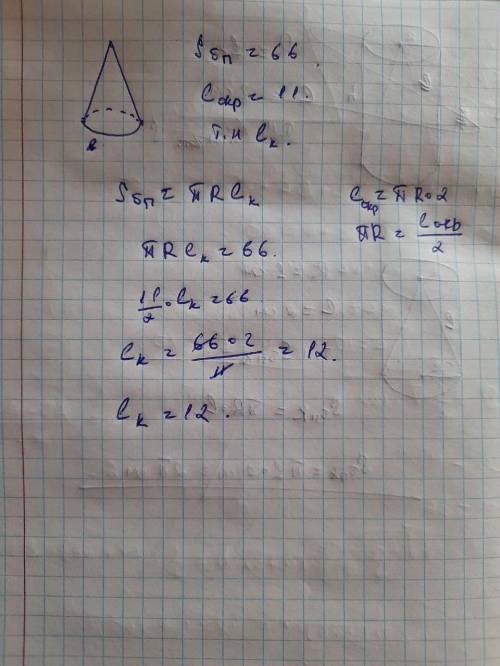 Sбп = 66.
Cокр = 11.
т.н lк.
R
Sбп = πRlк
Cокр = πR•2
πRlк = 66.
πR = Cокр/2
11/2 • lк = 66
lк = 66•2/11 = 12.
lк = 12.